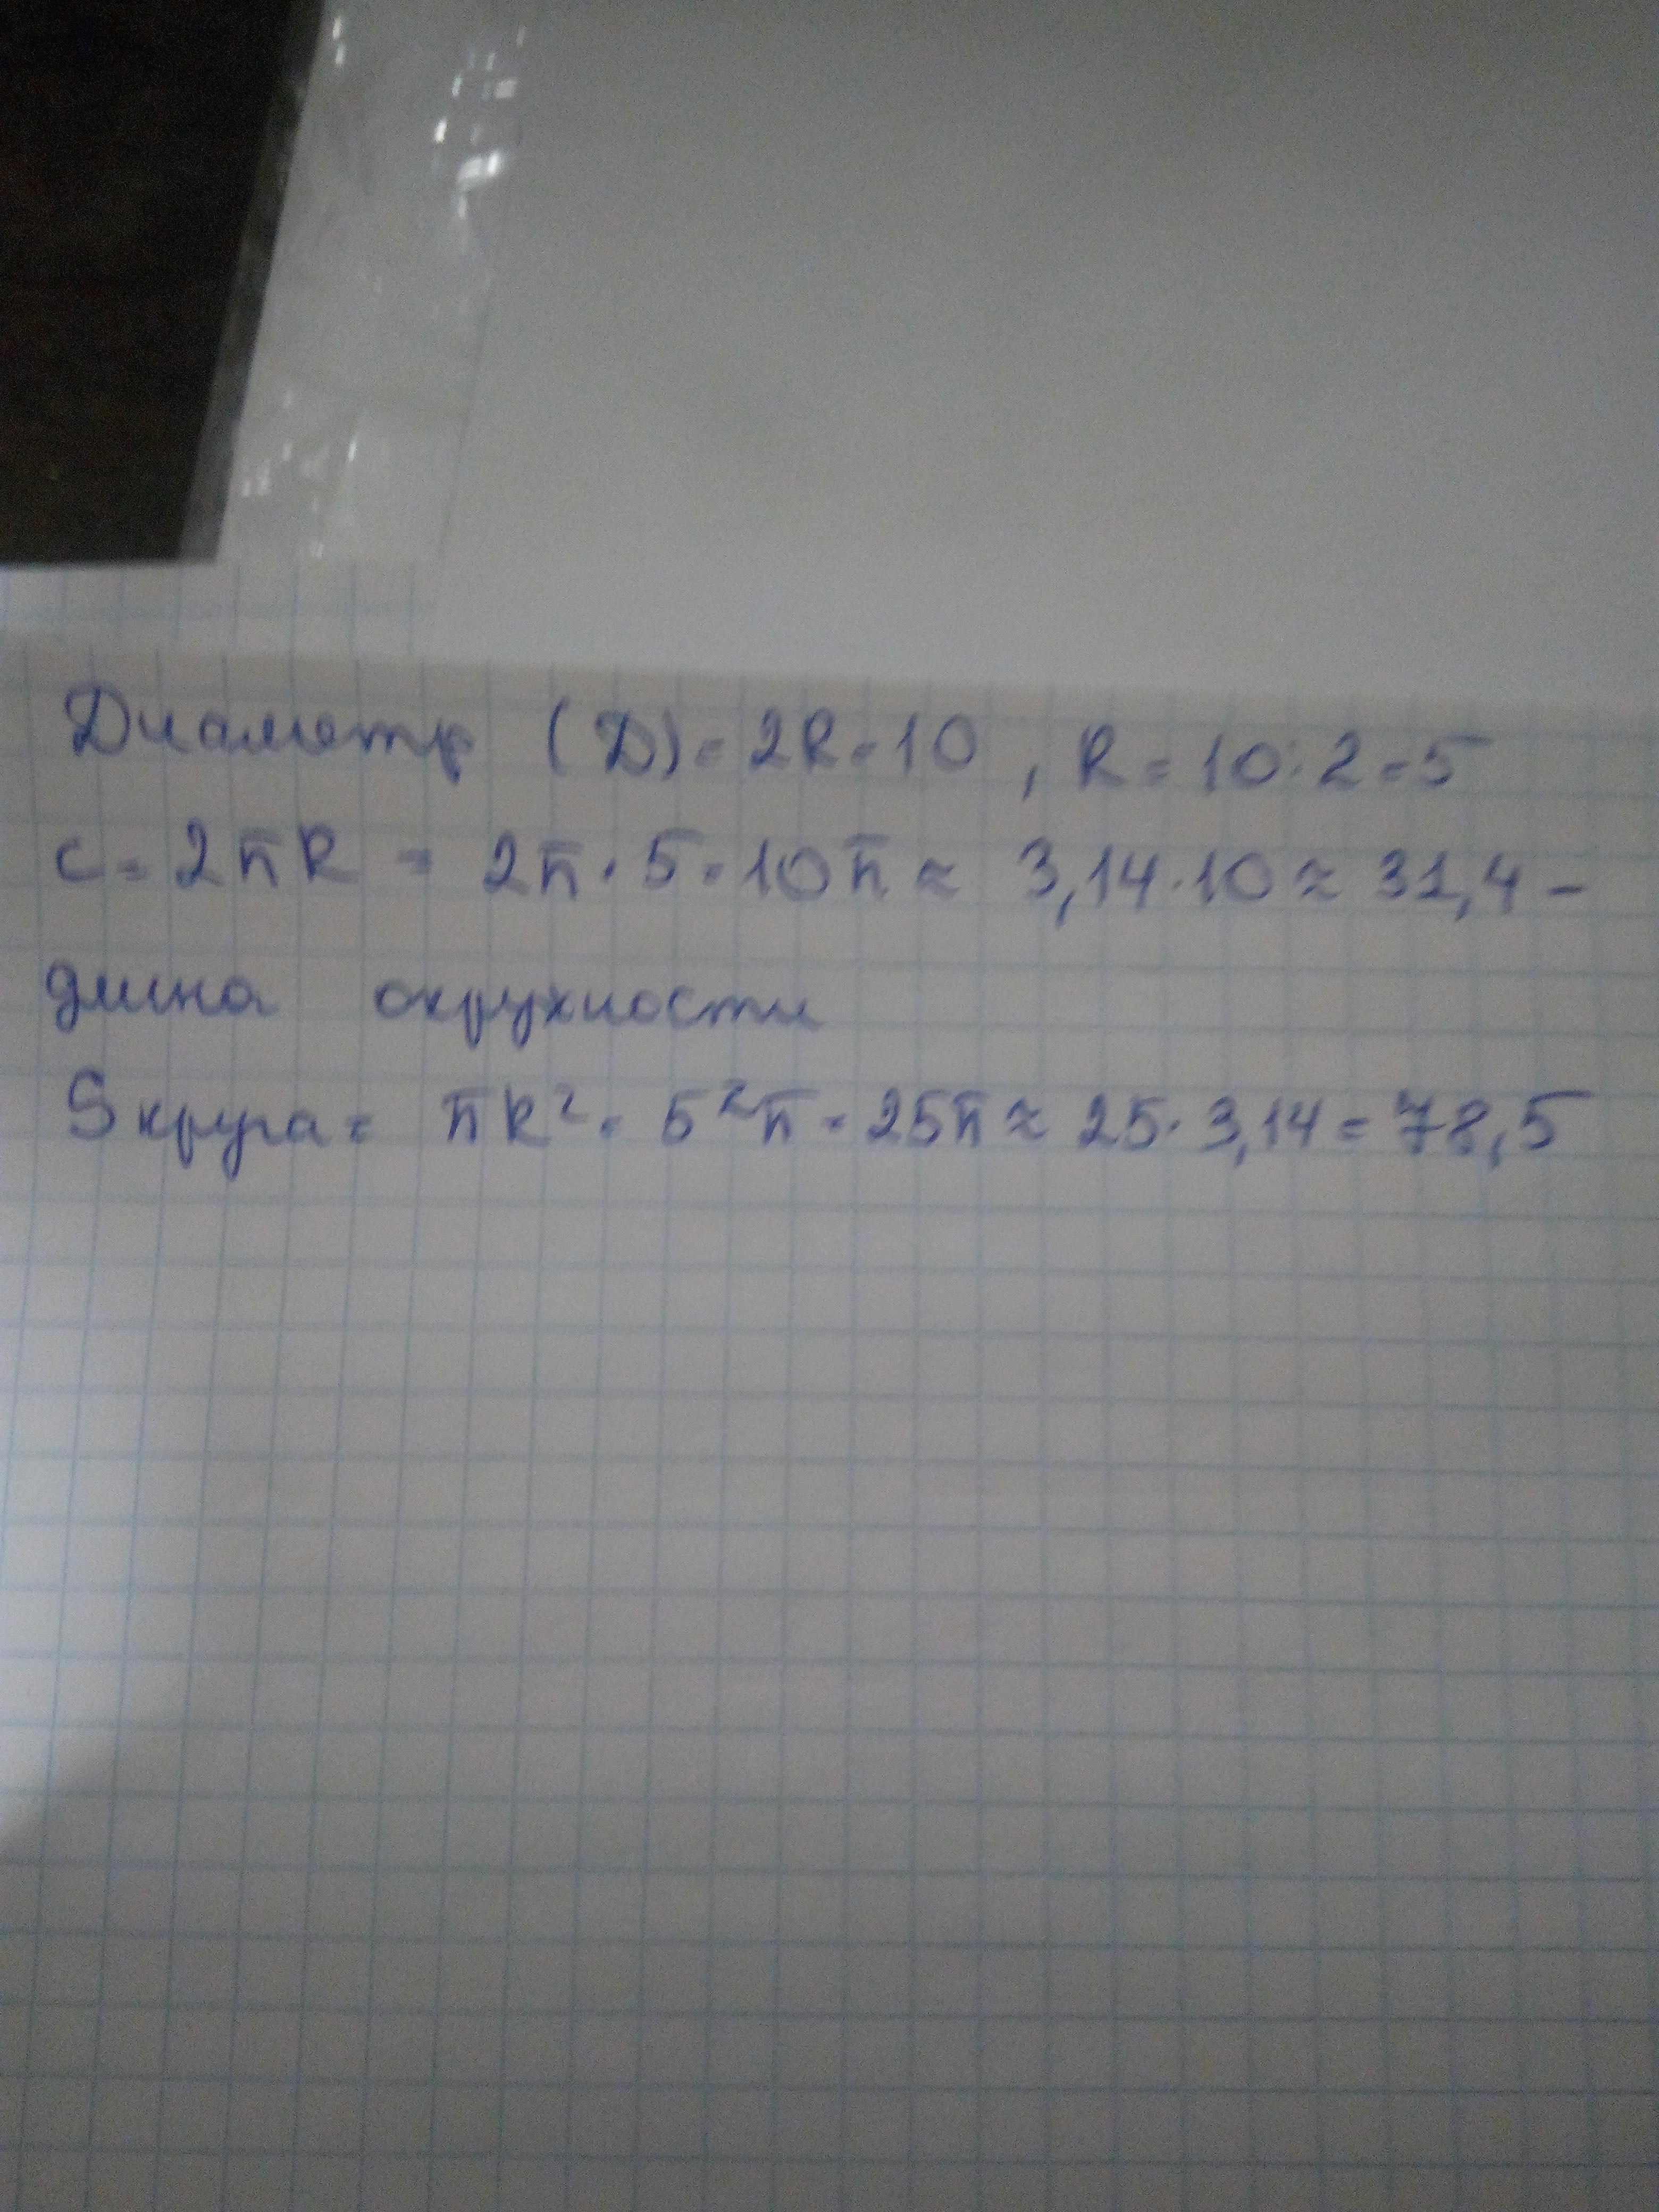 Диаметр (D) = 2R = 10, R = 10:2 = 5
C = 2πR = 2π · 5 = 10π ≈ 3,14 · 10 ≈ 31,4 -
длина окружности
S круга = πR² = 5²π = 25π ≈ 25 · 3,14 = 78,5